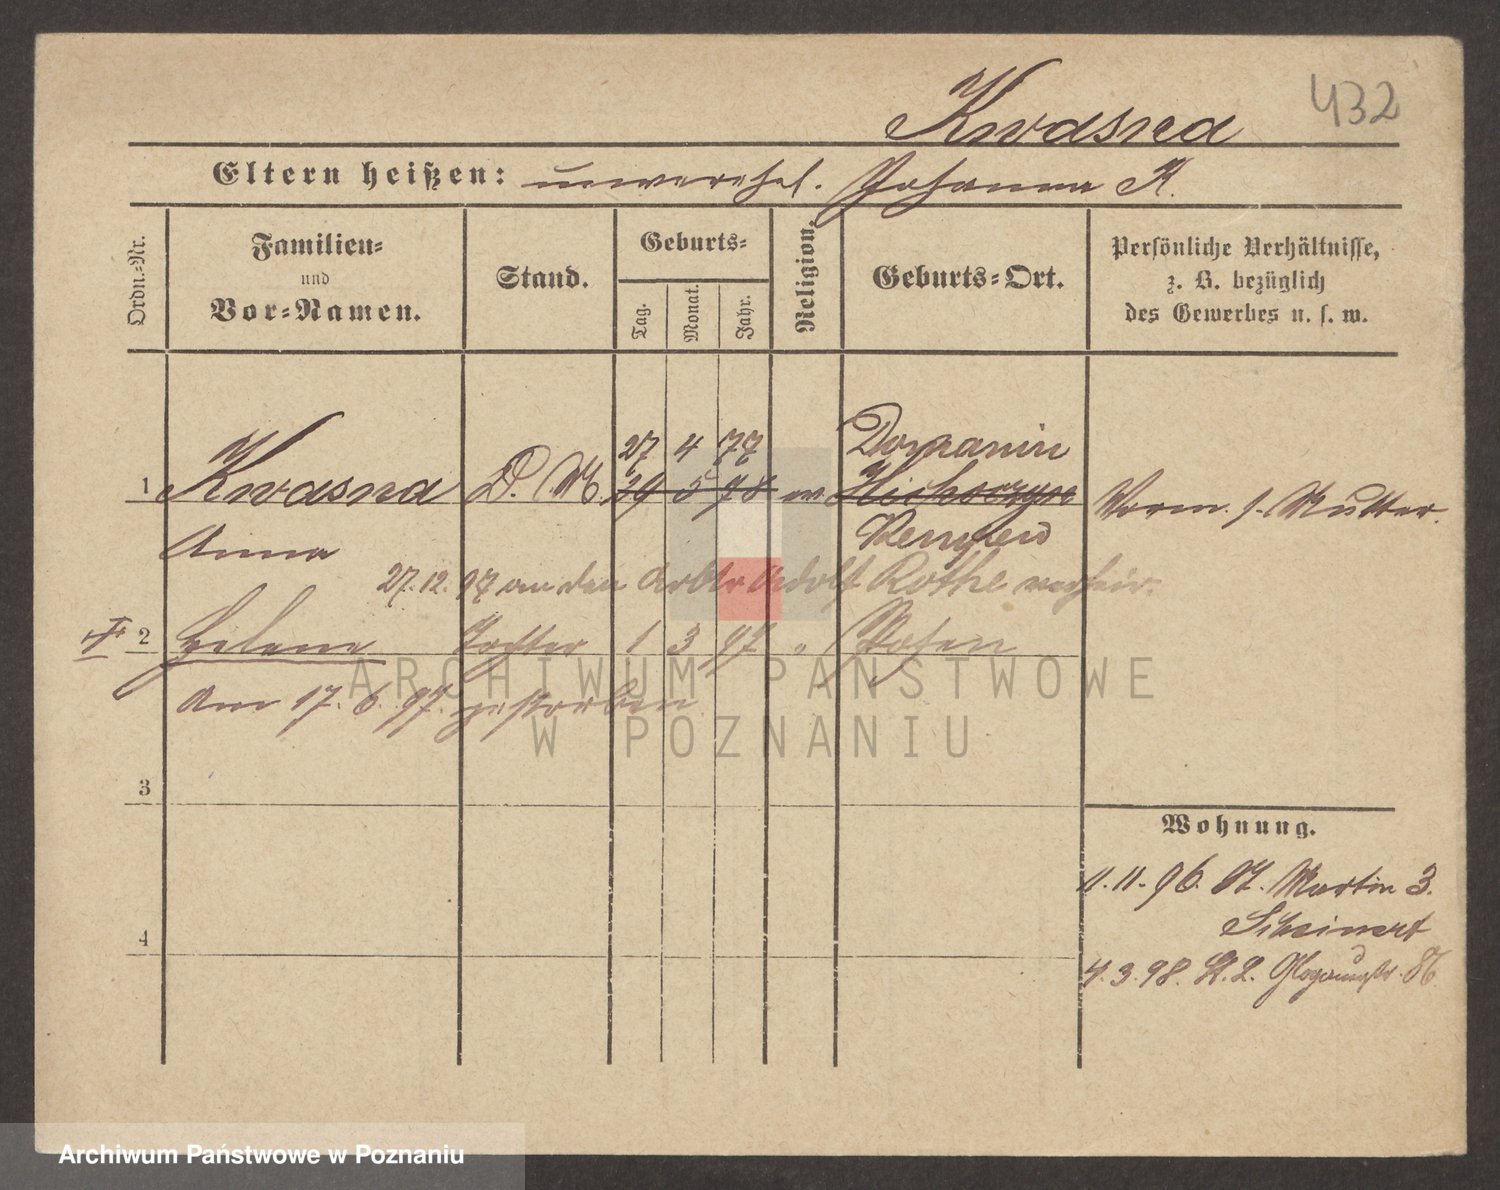 Kwasna 432
Eltern heißen: unverehel. Johanna K.
Ordn.-Nr.
Familien-
und
Vor-Namen.
Stand.
Geburts-
Tag.
Monat.
Jahr.
Religion.
Geburts-Ort.
Persönliche Verhältnisse,
z. B. bezüglich
des Gewerbes u. s. w.
27 4 77 Domanin
1 Kwasna D. M. 29 5 78 Vorm. s. Mutter.
Anna Kempen
27.12.97 an den Arbtr Adolf Rothe verheir.
2 Helene Tochter 1 3 97 " Posen
Am 17.6.97. gestorben
3
4
Wohnung.
11.11.96. St. Martin 3.
Scheinert
4.3.98. Glogauerstr. 86
ARCHIWUM PAŃSTWOWE
W POZNANIU
Archiwum Państwowe w Poznaniu